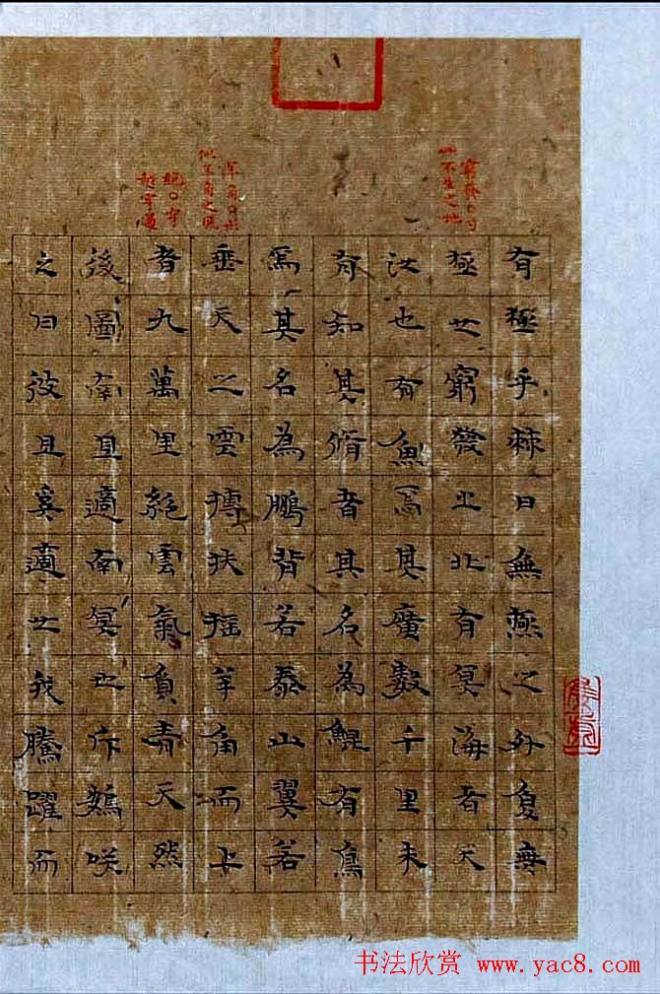 窮發
不生之地
羊角
似羊角之風
有極乎棘曰無極之外复無
極也窮發之北有冥海者天
池也有魚焉其廣數千里未
有知其脩者其名為鯤有鳥
焉其名為鵬背若泰山翼若
垂天之雲摶扶搖羊角而上
者九萬里絕雲氣負青天然
後圖南且適南冥也斥鴳咲
之曰彼且奚適也我騰躍而
书法欣赏 www.yac8.com